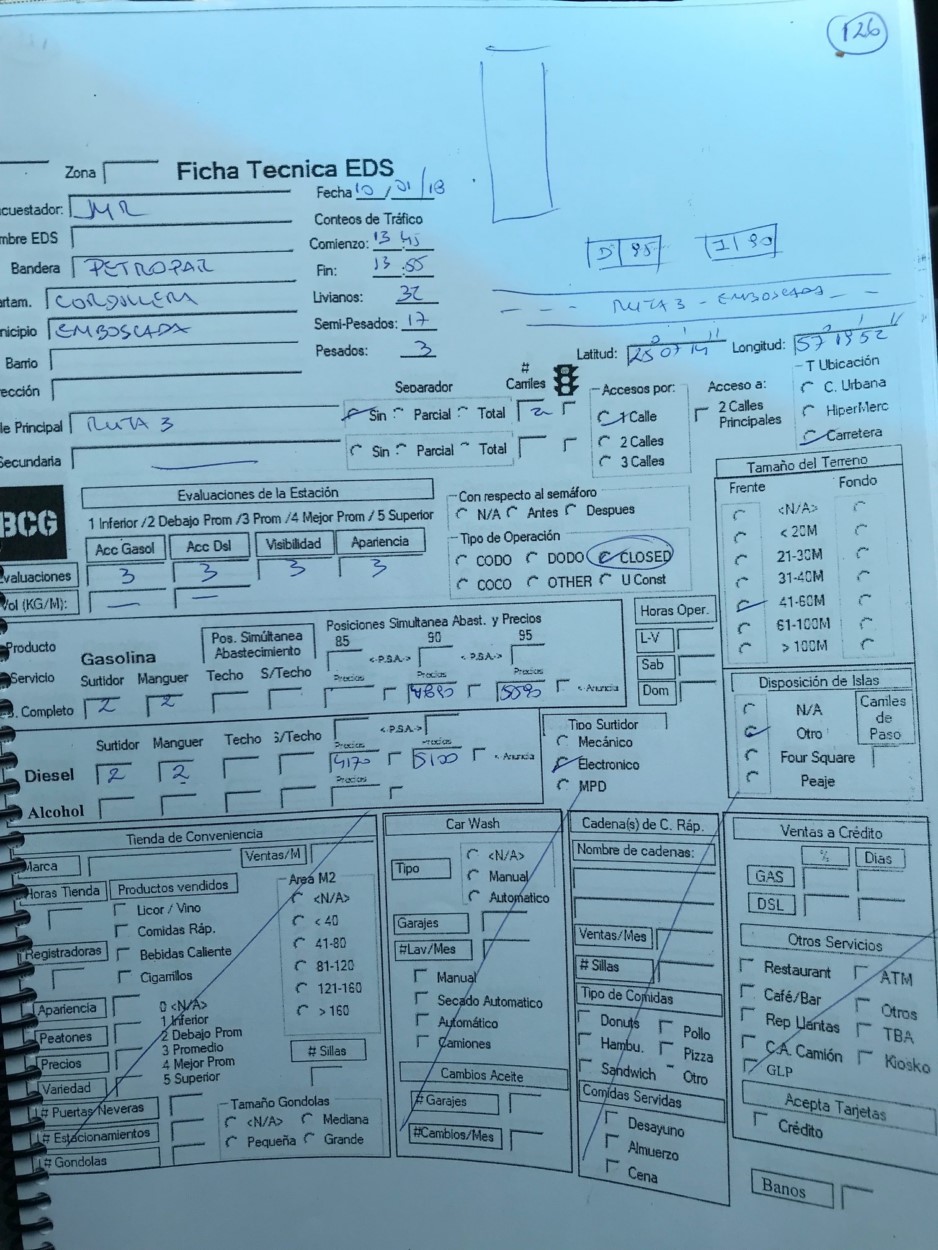 126
Zona Ficha Tecnica EDS
Fecha 10/01/18
cuestador: JMR
Conteos de Tráfico
mbre EDS
Comienzo: 13 45
Bandera PETROPAR
Fin: 13 55
artam. CORDILLERA
Livianos: 32
nicipio EMBOSCADA
Semi-Pesados: 17
Barrio
Pesados: 3
ección
D 95
RUTA 3 - EMBOSCADA
Latitud: 25 07 14 Longitud: 57 19 52
le Principal RUTA 3
Secundaria
Separador
# Carriles
Sin Parcial Total 2
Sin Parcial Total
Accesos por:
1 Calle
2 Calles
3 Calles
Acceso a:
2 Calles
Principales
T Ubicación
C. Urbana
HiperMerc
Carretera
BCG
Evaluaciones de la Estación
1 Inferior /2 Debajo Prom /3 Prom /4 Mejor Prom / 5 Superior
Acc Gasol Acc Dsl Visibilidad Apariencia
valuaciones 3 3 3 3
Vol (KG/M): — —
Con respecto al semáforo
N/A Antes Despues
Tipo de Operación
CODO DODO CLOSED
COCO OTHER U Const
Tamaño del Terreno
Frente Fondo
<N/A>
< 20M
21-30M
31-40M
41-60M
61-100M
> 100M
Producto
Servicio
Gasolina
Pos. Simúltanea
Abastecimiento
Posiciones Simultanea Abast. y Precios
85 90 95
<-P.S.A-> <-P.S.A->
Surtidor Manguer Techo S/Techo
Precios Precios Precios
S. Completo 2 2 4890 5590 <-Anuncia
Horas Oper.
L-V
Sab
Dom
Surtidor Manguer Techo S/Techo
<-P.S.A->
Precios Precios
Diesel 2 2 4170 5100 <-Anuncia
Precios
Alcohol
Tipo Surtidor
Mecánico
Electronico
MPD
Disposición de Islas
N/A
Otro
Four Square
Peaje
Carriles
de
Paso
Tienda de Conveniencia
Marca Ventas/M
Horas Tienda Productos vendidos
Licor / Vino
Comidas Ráp.
Registradoras Bebidas Caliente
Cigarrillos
Area M2
<N/A>
< 40
41-80
81-120
121-160
> 160
Apariencia
Peatones
Precios
Variedad
0 <N/A>
1 Inferior
2 Debajo Prom
3 Promedio
4 Mejor Prom
5 Superior
# Sillas
# Puertas Neveras
# Estacionamientos
# Gondolas
Tamaño Gondolas
<N/A> Mediana
Pequeña Grande
Car Wash
Tipo
<N/A>
Manual
Automatico
Garajes
#Lav/Mes
Manual
Secado Automatico
Automático
Camiones
Cambios Aceite
# Garajes
#Cambios/Mes
Cadena(s) de C. Ráp.
Nombre de cadenas:
Ventas/Mes
# Sillas
Tipo de Comidas
Donuts Pollo
Hambu. Pizza
Sandwich Otro
Comidas Servidas
Desayuno
Almuerzo
Cena
Ventas a Crédito
% Dias
GAS
DSL
Otros Servicios
Restaurant ATM
Café/Bar Otros
Rep Llantas TBA
C.A. Camión Kiosko
GLP
Acepta Tarjetas
Crédito
Banos